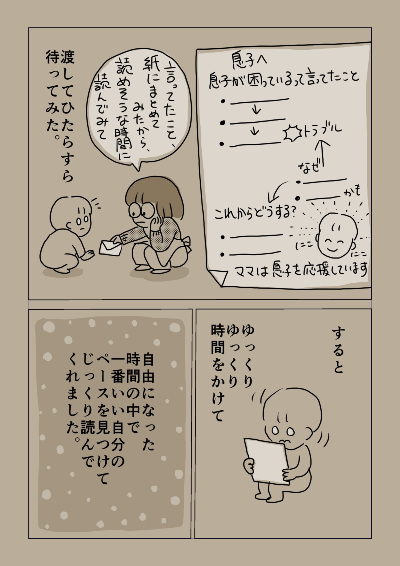 息子へ
息子が困っているって言ってたこと
トラブル
なぜ
かも
これからどうする?
にこ
にこ
ママは息子を応援しています
言ってたこと、
紙にまとめて
みたから、
読めそうな時間に
読んでみて
渡してひたすら
待ってみた。
すると
ゆっくり
ゆっくり
時間をかけて
自由になった
時間の中で
一番いい自分の
ペースを見つけて
じっくり読んで
くれました。